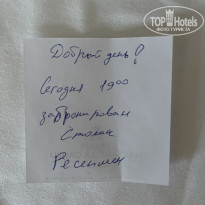 TOP HOTELS
ФОТО ТУРИСТА
Добрый день!
Сегодня 19⁰⁰
забронирован
Столик
Ресепшен